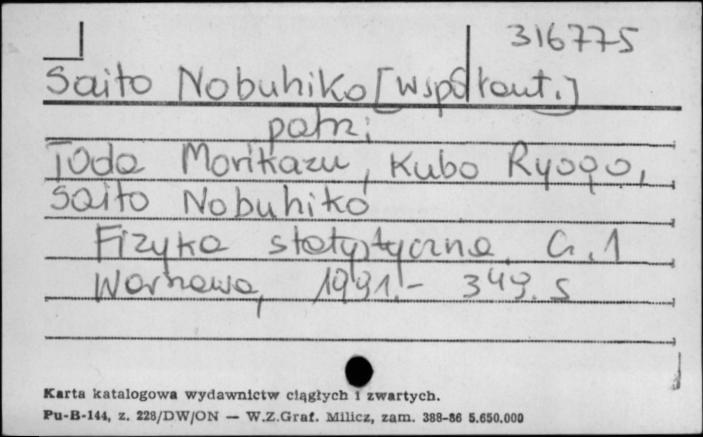 316775
Saito Nobuhiko [współaut.]
patrz:
Toda Morikazu, Kubo Ryogo,
Saito Nobuhiko
Fizyka statystyczna. Cz. 1
Warszawa, 1991.- 349. s
Karta katalogowa wydawnictw ciągłych i zwartych.
Pu-B-144, z. 228/DW/ON — W.Z.Graf. Milicz, zam. 388-86 5.650.000